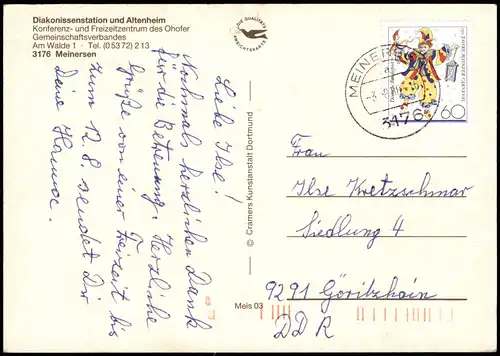 Diakonissenstation und Altenheim
Konferenz- und Freizeitzentrum des Ohofer
Gemeinschaftsverbandes
Am Walde 1 · Tel. (0 53 72) 2 13
3176 Meinersen
DIE QUALITÄTS
ANSICHTSKARTE
Liebe Ilse!
Nochmals herzlichen Dank
für die Betreuung. Herzliche
Grüße von einer Freizeit bis
zum 12.8. sendet Dir
Deine Hanna.
© Cramers Kunstanstalt Dortmund
Meis 03
MEINERSEN
3176
60
Frau
Ilse Kretzschmar
Siedlung 4
9291 Göritzhain
DDR